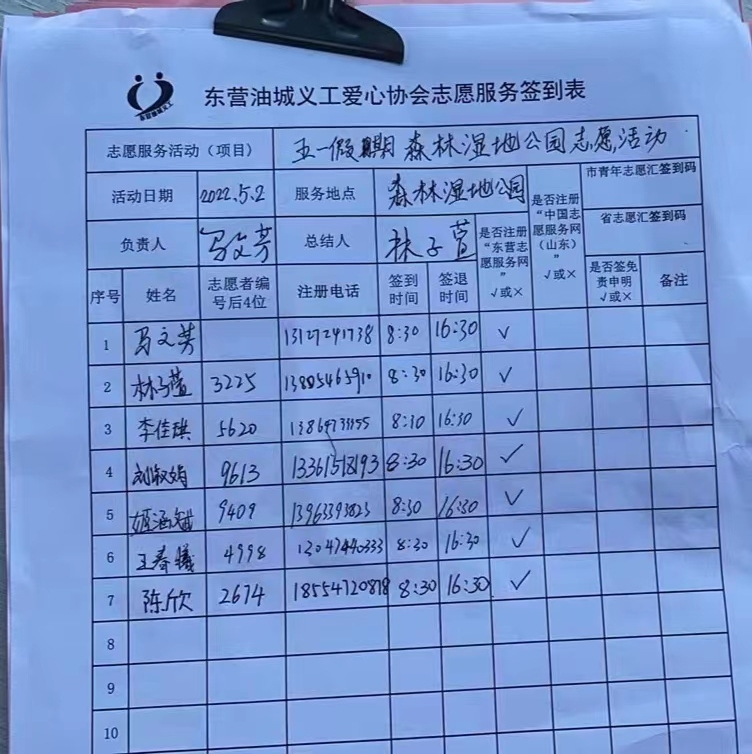 东营油城义工
东营油城义工爱心协会志愿服务签到表
志愿服务活动（项目） 五一假期 森林湿地公园志愿活动
活动日期 2022.5.2 服务地点 森林湿地公园 是否注册“中国志愿服务网（山东）”√或× 市青年志愿汇签到码
负责人 总结人 林子萱 是否注册“东营志愿服务网”√或× 省志愿汇签到码
序号 姓名 志愿者编号后4位 注册电话 签到时间 签退时间 是否签免责申明√或× 备注
1 13127241738 8:30 16:30 √
2 林子萱 3225 13805465910 8:30 16:30 √
3 李佳琪 5620 8:30 16:30 √
4 刘淑娟 9613 13361518193 8:30 16:30 √
5 9409 13963393823 8:30 16:30 √
6 王春曦 4998 13047440333 8:30 16:30 √
7 陈欣 2674 18554720878 8:30 16:30 √
8
9
10